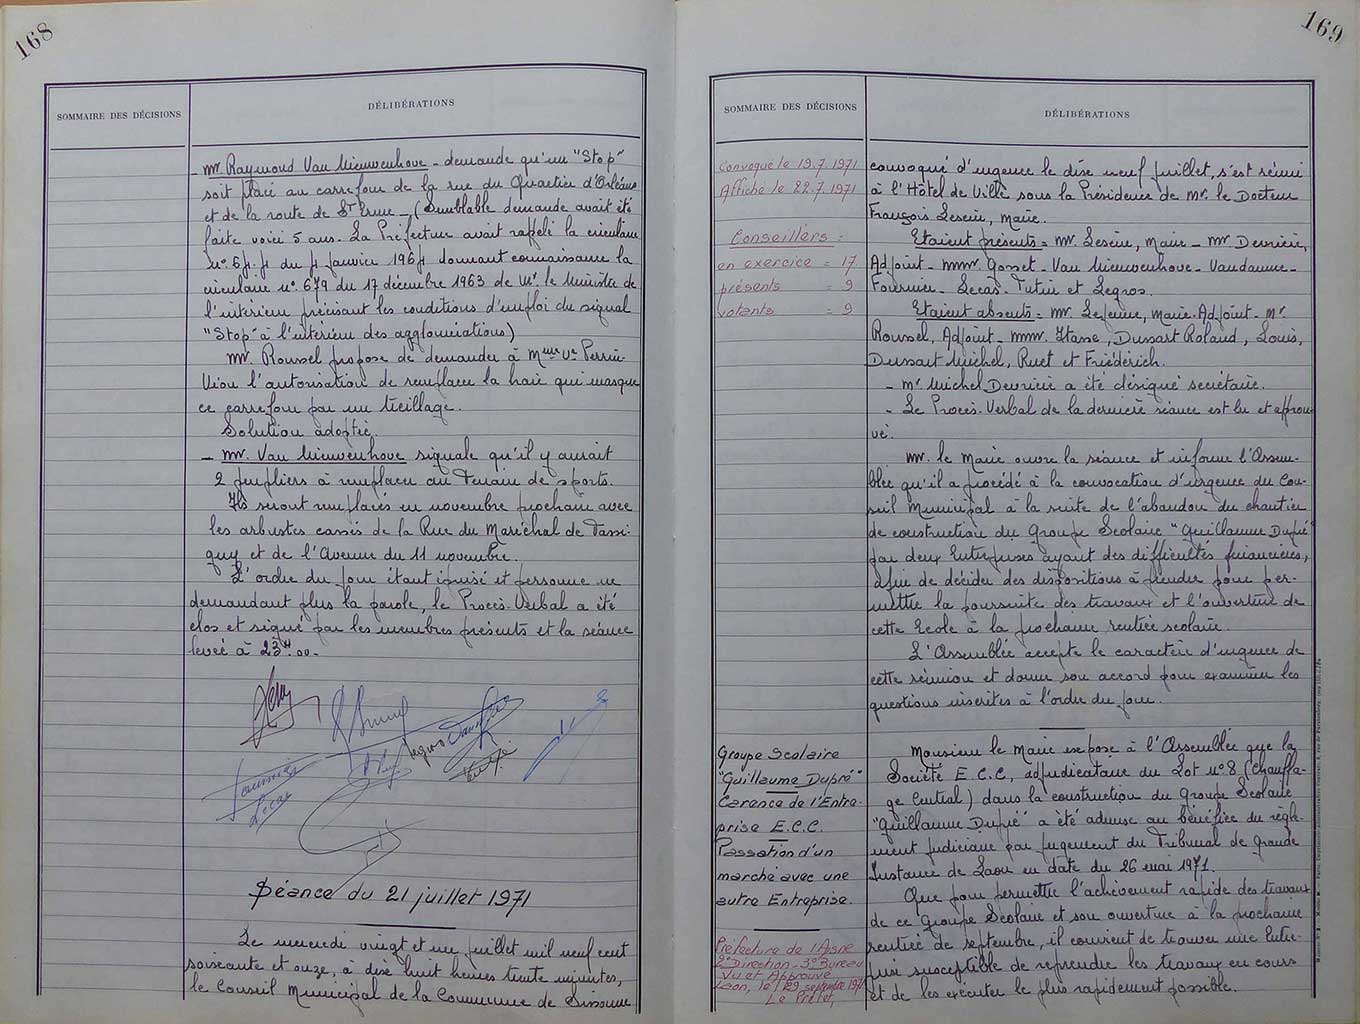 168
SOMMAIRE DES DÉCISIONS
DÉLIBÉRATIONS
- Mr Raymond Van Nieuwenhove - demande qu'un "Stop"
soit placé au carrefour de la rue du Quartier d'Orléans
et de la route de St Erme - (Semblable demande avait été
faite voici 5 ans. La Préfecture avait rappelé la circulaire
du 4 janvier 1964 donnant connaissance la
circulaire n° 679 du 17 décembre 1963 de Mr. le Ministre de
l'intérieur précisant les conditions d'emploi du signal
"Stop" à l'intérieur des agglomérations)
Mr. Roussel propose de demander à Mme Ve Perrin-
Viou l'autorisation de remplacer la haie qui masque
ce carrefour par un treillage.
Solution adoptée.
- Mr. Van Nieuwenhove signale qu'il y aurait
2 peupliers à remplacer au Terrain de sports.
Ils seront remplacés en novembre prochain avec
les arbustes cassés de la Rue du Maréchal de Tassi-
gny et de l'Avenue du 11 novembre.
L'ordre du jour étant épuisé et personne ne
demandant plus la parole, le Procès-Verbal a été
clos et signé par les membres présents et la séance
levée à 23H.00.-
Séance du 21 juillet 1971
Le mercredi vingt et un juillet mil neuf cent
soixante et onze, à dix huit heures trente minutes,
le Conseil Municipal de la Commune de Sissonne
169
SOMMAIRE DES DÉCISIONS
DÉLIBÉRATIONS
Convoqué le 19.7.1971
Affiché le 22.7.1971
Conseillers :
en exercice = 17
présents = 9
votants = 9
convoqué d'urgence le dix neuf juillet, s'est réuni
à l'Hôtel de Ville sous la Présidence de Mr. le Docteur
François Leseur, Maire.
Etaient présents = Mr. Leseur, Maire - Mr Devrière,
Adjoint - MMrs. Gosset - Van Nieuwenhove - Vandamme -
Fournier - Lecas - Tutin et Legros.
Etaient absents = Mr. Lejeune, Maire-Adjoint - Mr.
Roussel, Adjoint - MMrs. Hasse, Dussart Roland, Louis,
Dussart Michel, Ruet et Friédérich.
- Mr Michel Devrière a été désigné secrétaire.
- Le Procès-Verbal de la dernière séance est lu et approu-
vé.
Mr. le Maire ouvre la séance et informe l'Assem-
blée qu'il a procédé à la convocation d'urgence du Con-
seil Municipal à la suite de l'abandon du chantier
de construction du Groupe Scolaire "Guillaume Dupré"
par deux Entreprises ayant des difficultés financières,
afin de décider des dispositions à prendre pour per-
mettre la poursuite des travaux et l'ouverture de
cette Ecole à la prochaine rentrée scolaire.
L'Assemblée accepte le caractère d'urgence de
cette réunion et donne son accord pour examiner les
questions inscrites à l'ordre du jour.
Groupe Scolaire
"Guillaume Dupré"
Carence de l'Entre-
prise E.C.C.
Passation d'un
marché avec une
autre Entreprise.
Monsieur le Maire expose à l'Assemblée que la
Société E.C.C, adjudicataire du Lot n°8 (Chauffa-
ge Central) dans la construction du Groupe Scolaire
"Guillaume Dupré" a été admise au bénéfice du règle-
ment judiciaire par jugement du Tribunal de Grande
Instance de Laon en date du 26 mai 1971.
Que pour permettre l'achèvement rapide des travaux
de ce Groupe Scolaire et son ouverture à la prochaine
rentrée de septembre, il convient de trouver une Entre-
prise susceptible de reprendre les travaux en cours
et de les exécuter le plus rapidement possible.
Préfecture de l'Aisne
2° Direction - 3° Bureau
Vu et Approuvé
Laon, le 29 septembre 1971
Le Préfet,